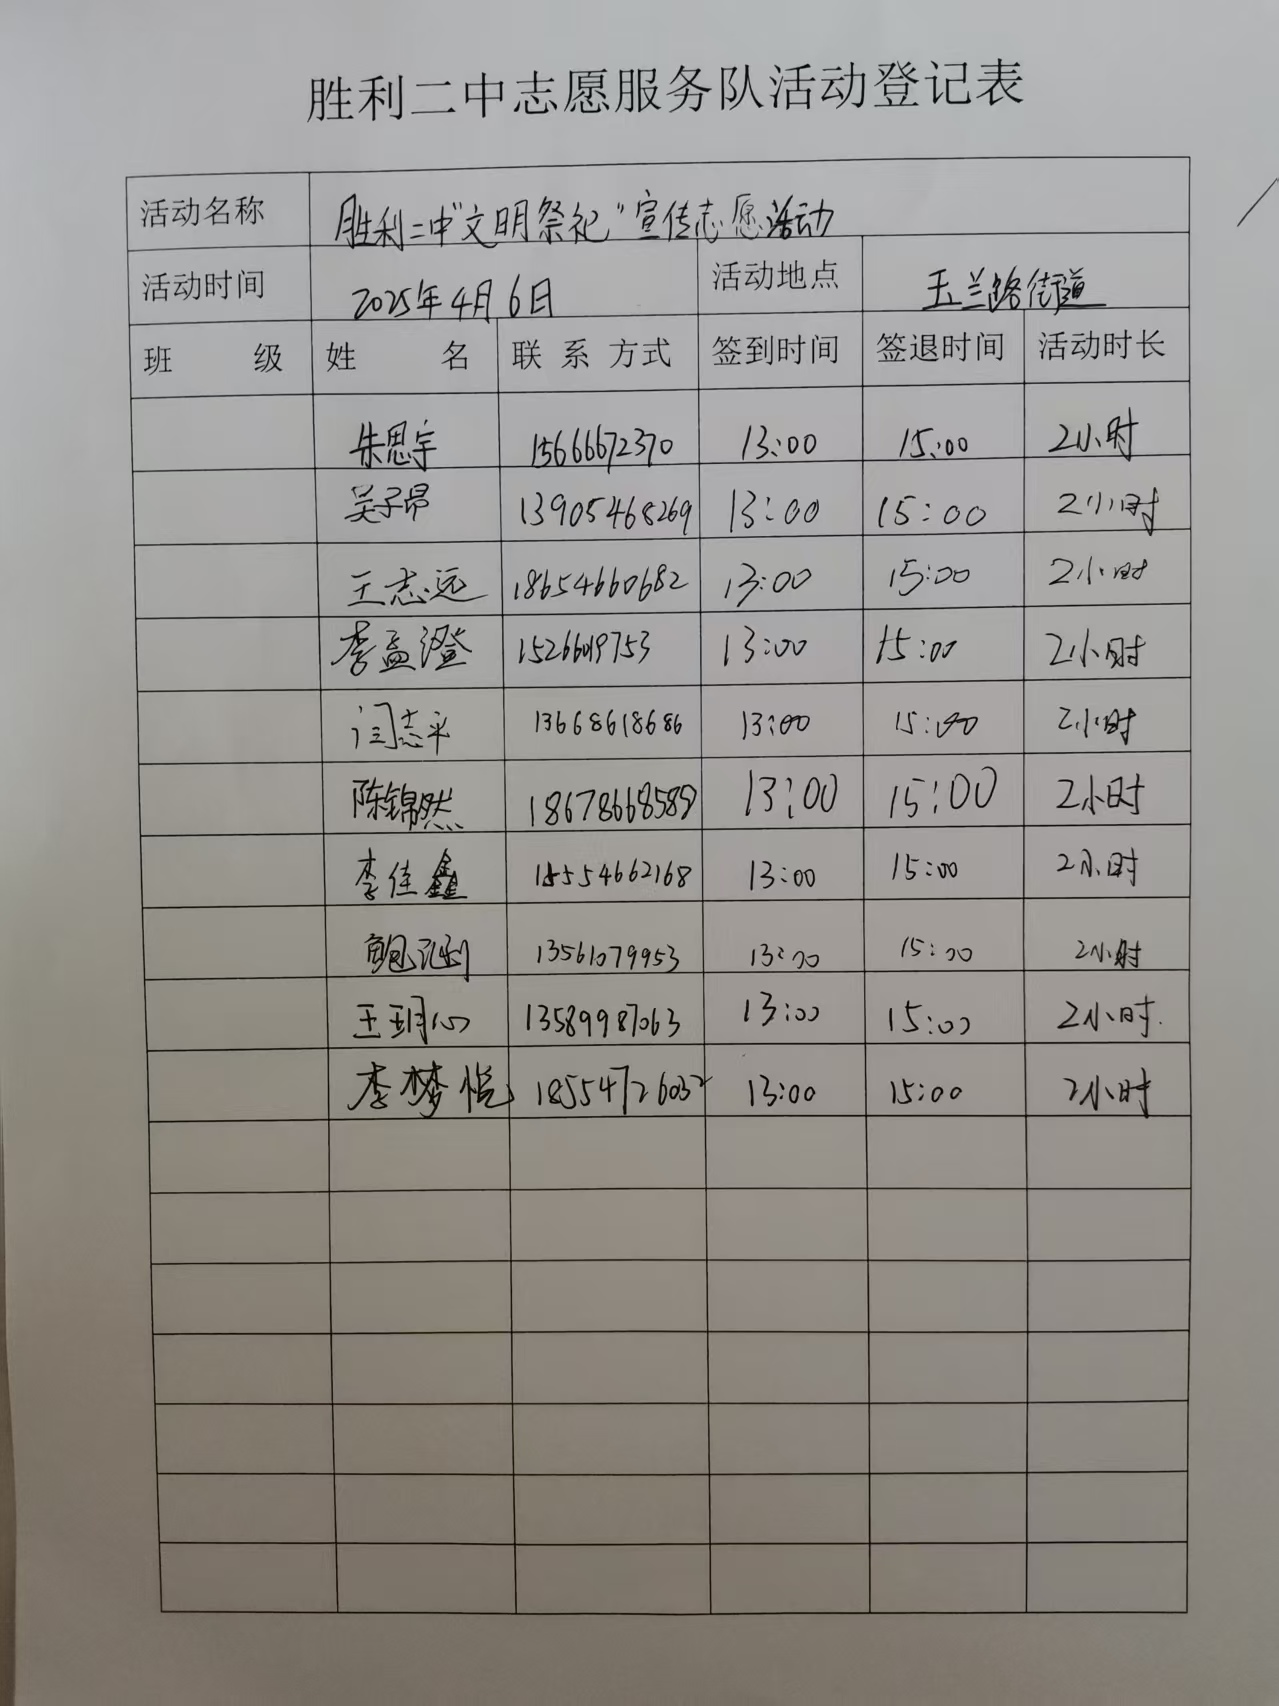 胜利二中志愿服务队活动登记表
活动名称 胜利二中"文明祭祀"宣传志愿活动
活动时间 2025年4月6日 活动地点 玉兰路街道
班 级 姓 名 联系方式 签到时间 签退时间 活动时长
朱思宇 15666672370 13:00 15:00 2小时
吴子昂 13905468269 13:00 15:00 2小时
王志远 18654660682 13:00 15:00 2小时
李孟澄 13:00 15:00 2小时
闫志平 13668618686 13:00 15:00 2小时
陈锦然 18678668589 13:00 15:00 2小时
李佳鑫 15554662168 13:00 15:00 2小时
鲍 13561079953 13:00 15:00 2小时
王玥心 13589987063 13:00 15:00 2小时
李梦悦 18554726032 13:00 15:00 2小时